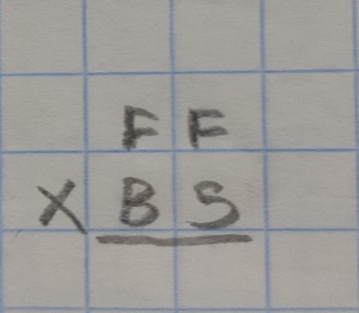 FF
XBS